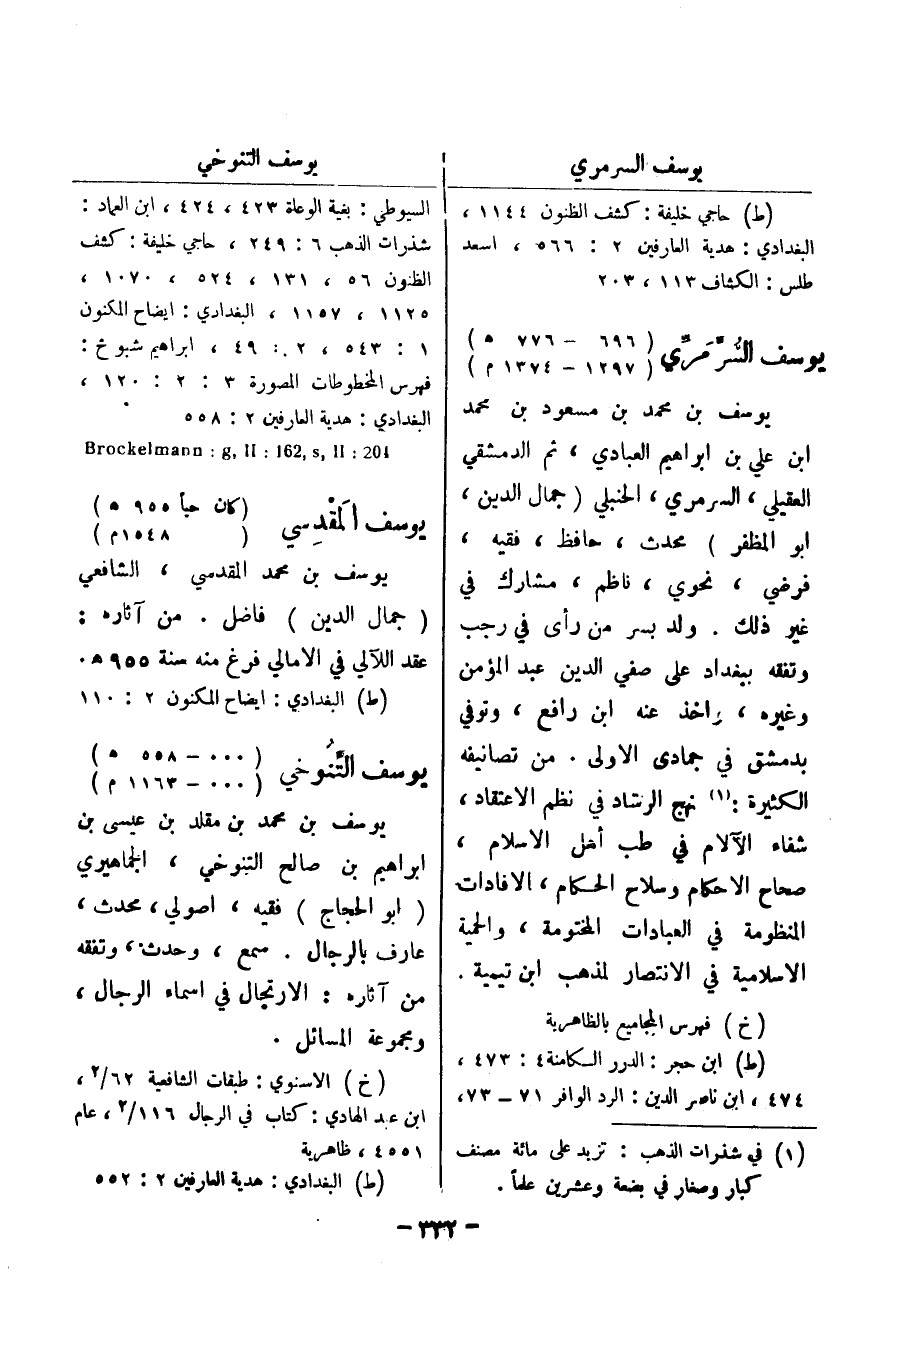 يوسف السرمري
(ط) حاجي خليفة : كشف الظنون ١١٤٤ ،
البغدادي : هدية العارفين ٢ : ٥٦٦ ، اسعد
طلس : الكشاف ١١٣ ، ٢٠٣
يوسف السُّرَّمَرِّي ( ٦٩٦ – ٧٧٦ ه )
( ١٢٩٧ – ١٣٧٤ م )
يوسف بن محمد بن مسعود بن محمد
ابن علي بن ابراهيم العبادي ، ثم الدمشقي
العقيلي ، السرمري ، الحنبلي ( جمال الدين ،
ابو المظفر ) محدث ، حافظ ، فقيه ،
فرضي ، نحوي ، ناظم ، مشارك في
غير ذلك . ولد بسر من رأى في رجب
وتفقه ببغداد على صفي الدين عبد المؤمن
وغيره ، واخذ عنه ابن رافع ، وتوفي
بدمشق في جمادى الاولى . من تصانيفه
الكثيرة :(١) نهج الرشاد في نظم الاعتقاد ،
شفاء الآلام في طب أهل الاسلام ،
صحاح الاحكام وسلاح الحكام ، الافادات
المنظومة في العبادات المختومة ، والحمية
الاسلامية في الانتصار لمذهب ابن تيمية .
(خ) فهرس المجاميع بالظاهرية
(ط) ابن حجر : الدرر الكامنة ٤ : ٤٧٣ ،
٤٧٤ ، ابن ناصر الدين : الرد الوافر ٧١ – ٧٣ ،
(١) في شذرات الذهب : تزيد على مائة مصنف
كبار وصغار في بضعة وعشرين علماً .
يوسف التنوخي
السيوطي : بغية الوعاة ٤٢٣ ، ٤٢٤ ، ابن العماد :
شذرات الذهب ٦ : ٢٤٩ ، حاجي خليفة : كشف
الظنون ٥٦ ، ١٣١ ، ٥٢٤ ، ١٠٧٠ ،
١١٢٥ ، ١١٥٧ ، البغدادي : ايضاح المكنون
١ : ٥٤٣ ، ٢ : ٤٩ ، ابراهيم شبوخ :
فهرس المخطوطات المصورة ٣ : ٢ : ١٢٠ ،
البغدادي : هدية العارفين ٢ : ٥٥٨
Brockelmann : g, II : 162, s, II : 204
يوسف المَقْدِسي (كان حياً ٩٥٥ ه )
( ١٥٤٨م )
يوسف بن محمد المقدسي ، الشافعي
( جمال الدين ) فاضل . من آثاره :
عقد اللآلي في الامالي فرغ منه سنة ٩٥٥ ه .
(ط) البغدادي : ايضاح المكنون ٢ : ١١٠
يوسف التَّنُوخي ( ٠٠٠ – ٥٥٨ ه )
( ٠٠٠ – ١١٦٣ م )
يوسف بن محمد بن مقلد بن عيسى بن
ابراهيم بن صالح التنوخي ، الجماهيري
( ابو الحجاج ) فقيه ، اصولي ، محدث ،
عارف بالرجال . سمع ، وحدث ، وتفقه
من آثاره : الارتجال في اسماء الرجال ،
ومجموعة المسائل .
(خ) الاسنوي : طبقات الشافعية ٦٢/٢ ،
ابن عبد الهادي : كتاب في الرجال ١١٦/٢ ، عام
٤٥٥١ ، ظاهرية
(ط) البغدادي : هدية العارفين ٢ : ٥٥٢
– ٣٣٢ –